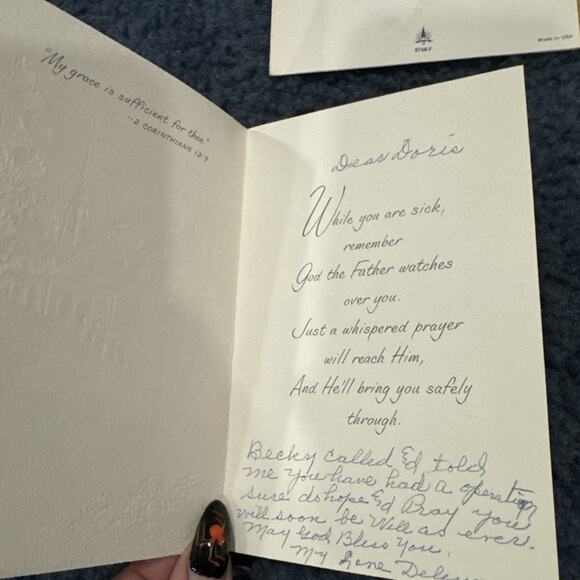 "My grace is sufficient for thee."
--2 CORINTHIANS 12:9
Made in USA
Dear Doris
While you are sick,
remember
God the Father watches
over you.
Just a whispered prayer
will reach Him,
And He'll bring you safely
through.
Becky called &d told
me you have had a operation
sure do hope &d Pray you
will soon be Well as ever.
May God Bless You.
My Love